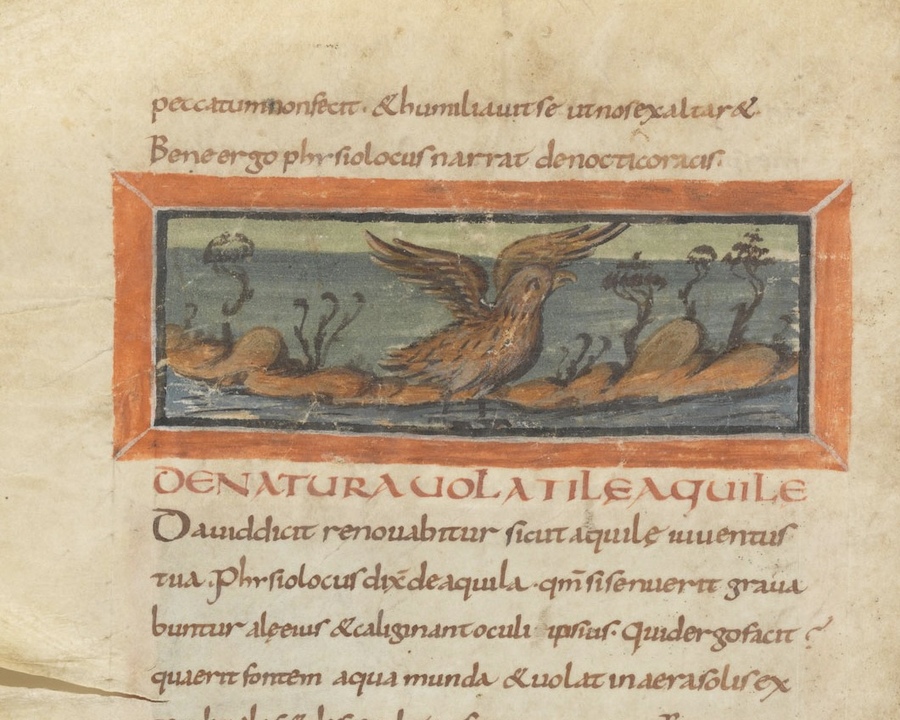 peccatum non fecit · & humiliauit se ut nos exaltar&
Bene ergo phisiolocus narrat de nocticoracis·
DE NATURA UOLATILE AQUILE
Dauid dicit renouabitur sicut aquilę iuuentus
tua · Phisiolocus dix̄ de aquila · qm̄ si senuerit graua
buntur alę eius & caliginant oculi ipsius · Quid ergo facit ?
quaerit fontem aqua munda & uolat in aera solis ex